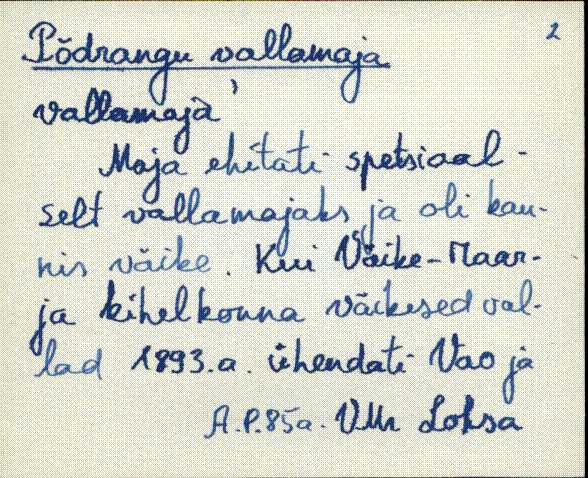 2
Põdrangu vallamaja
vallamaja
Maja ehitati spetsiaal-
selt vallamajaks ja oli kau-
nis väike. Kui Väike-Maar-
ja kihelkonna väikesed val-
lad 1893.a. ühendati Vao ja
A.P. 85a. VMr Loksa